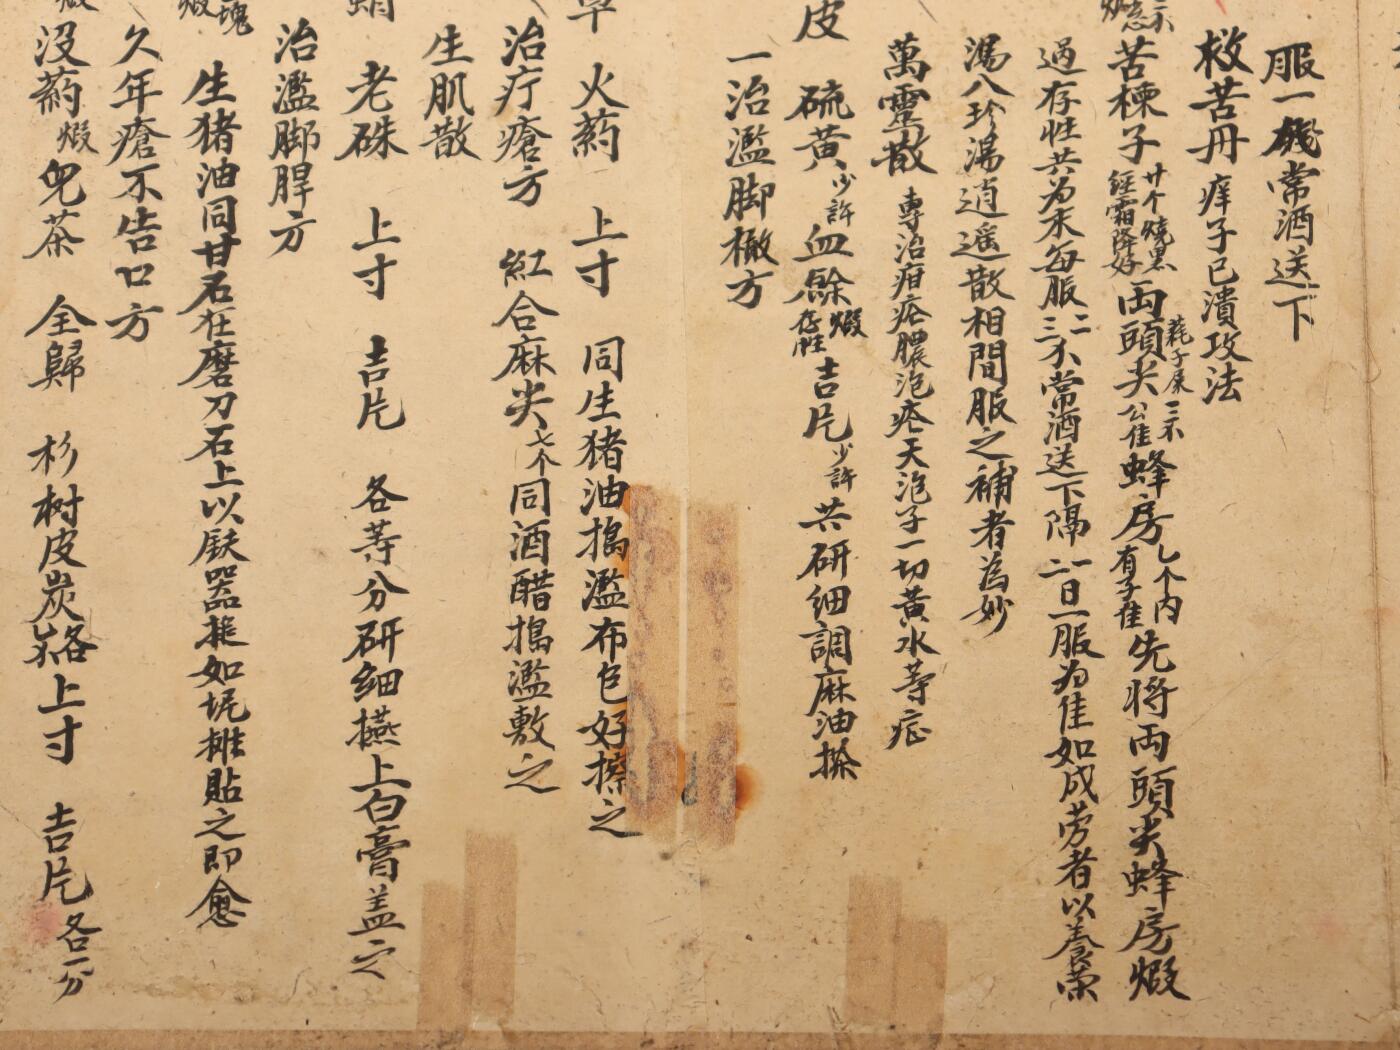 服一 常酒送下
救苦丹 痒子已潰攻法
苦楝子廿个燒黑經霜降好両頭尖耗子屎三不公佳蜂房七个內有子佳先将両頭尖蜂房煅
過存性共為末每服二三不常酒送下隔一二日一服為佳如成劳者以養荣
湯八珍湯逍遥散相間服之補者為妙
萬靈散 專治疳疮膿泡疮天泡子一切黃水等症
皮 硫黃少許血餘煅存性吉片少許共研細調麻油搽
一治濫脚橄方
草 火药 上寸 同生猪油搗濫布包好擦之
治疔瘡方 紅合麻尖七个同酒醋搗濫敷之
生肌散
老硃 上寸 吉片 各等分研細 上白膏盖之
治濫脚脻方
生猪油同甘石在磨刀石上以鉄器搥如坭攤貼之即愈
久年瘡不告口方
没药煅兒茶 全歸 杉树皮炭 上寸 吉片各一分